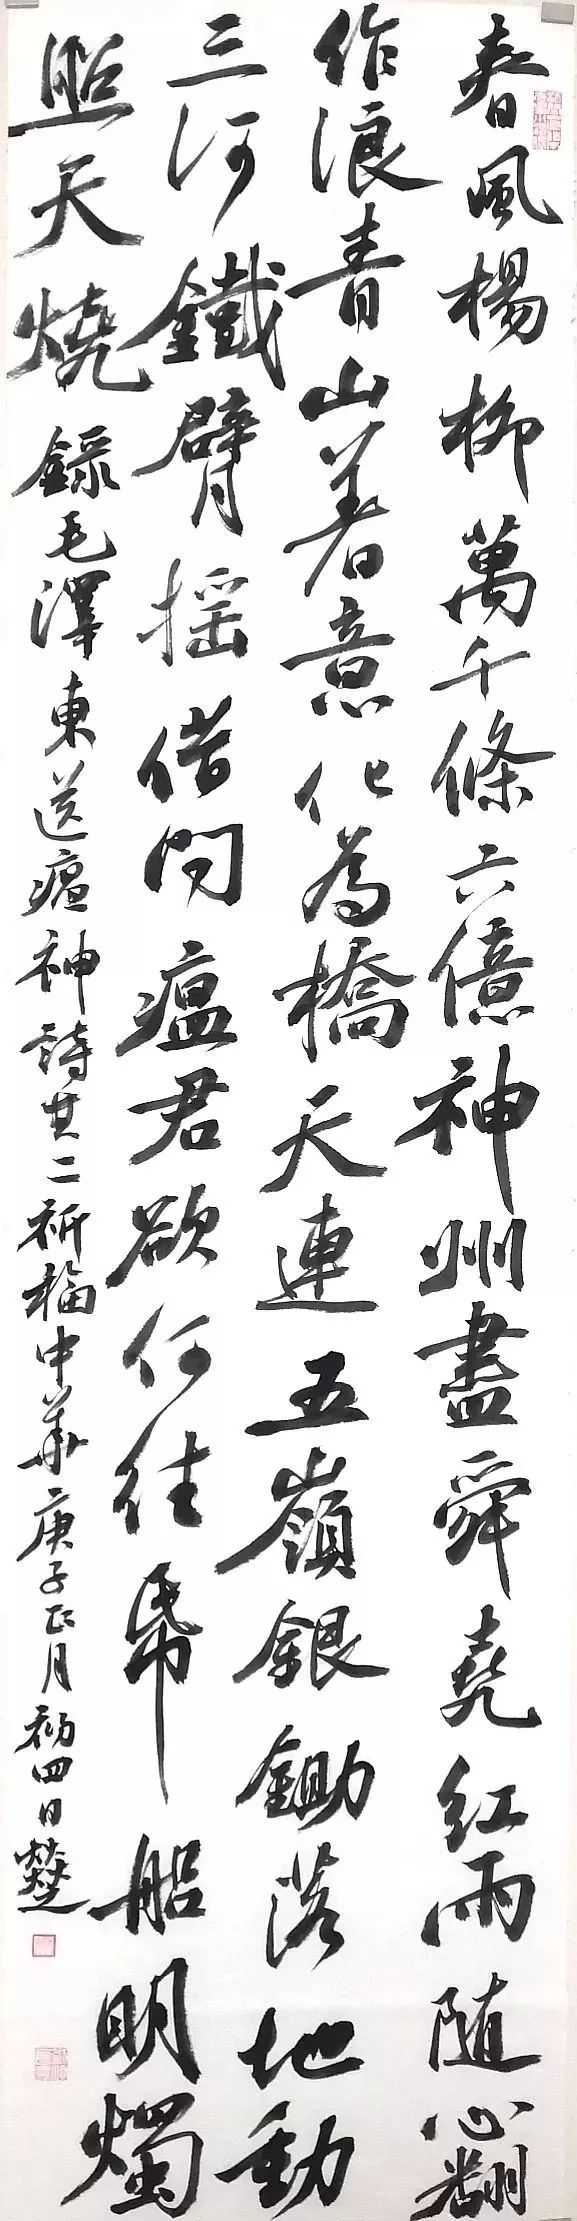 春風楊柳萬千條六億神州盡舜堯紅雨随心翻
作浪青山着意化為橋天連五嶺銀鋤落地動
三河鐵臂摇借問瘟君欲何往帋船明燭
照天燒錄毛澤東送瘟神詩其二祈福中華庚子正月初四日